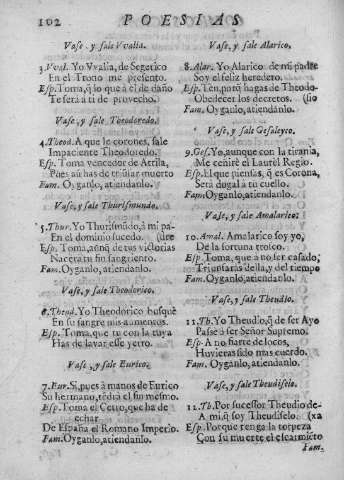 102 POESIAS
Vase, y sale Vvalia.
3. Vval. Yo Vvalia, de Segerico
En el Trono me presento.
Esp. Toma, q̃ lo que à èl de daño
Te serà à ti de provecho.
Vase, y sale Theodoredo.
4. Theod. A que le corones, sale
Impaciente Theodoredo.
Esp. Toma vencedor de Atila,
Pues aũ has de triũfar muerto
Fam. Oyganlo, atiendanlo.
Vase, y sale Thurismundo.
5. Thur. Yo Thurismũdo, à mi pa-
En el dominio sucedo. (dre
Esp. Toma, aunq̃ de tus victorias
Nacerà tu fin sangriento.
Fam. Oyganlo, atiendanlo.
Vase, y sale Theodorico.
6. Theod. Yo Theodorico busquè
En su sangre mis aumentos.
Esp. Toma, que tu con la tuya
Has de lavar esse yerro.
Vase, y sale Eurico.
7. Eur. Si, pues à manos de Eurico
Su hermano, tẽdrà el fin mesmo.
Esp. Toma el Cetro, que ha de
echar
De España el Romano Imperio.
Fam. Oyganlo, atiendanlo.
Vase, y sale Alarico.
8. Alar. Yo Alarico de mi padre
Soy el feliz heredero.
Esp. Ten, porq̃ hagas de Theodo-
Obedecer los decretos. (sio
Fam. Oyganlo, atiendanlo.
Vase, y sale Gesaleyco.
9. Ges. Yo, aunque con la tirania,
Me ceñirè el Laurel Regio.
Esp. El que piensas, q̃ es Corona,
Serà dogal à tu cuello.
Fam. Oyganlo, atiendanlo.
Vase, y sale Amalarico.
10. Amal. Amalarico soy yo,
De la fortuna trofeo.
Esp. Toma, que à no ser casado,
Triunfaràs della, y del tiempo
Fam. Oyganlo, atiendanlo.
Vase, y sale Theudio.
11. Th. Yo Theudio, q̃ de ser Ayo
Passè à ser Señor Supremo.
Esp. A no fiarte de locos,
Huvieras sido mas cuerdo.
Fam. Oyganlo, atiendanlo.
Vase, y sale Theudiselo.
12. Th. Por sucessor Theudio de-
A mi, q̃ soy Theudiselo. (xa
Esp. Porque tenga la torpeza
Con su muerte el escarmiẽto
Fam.